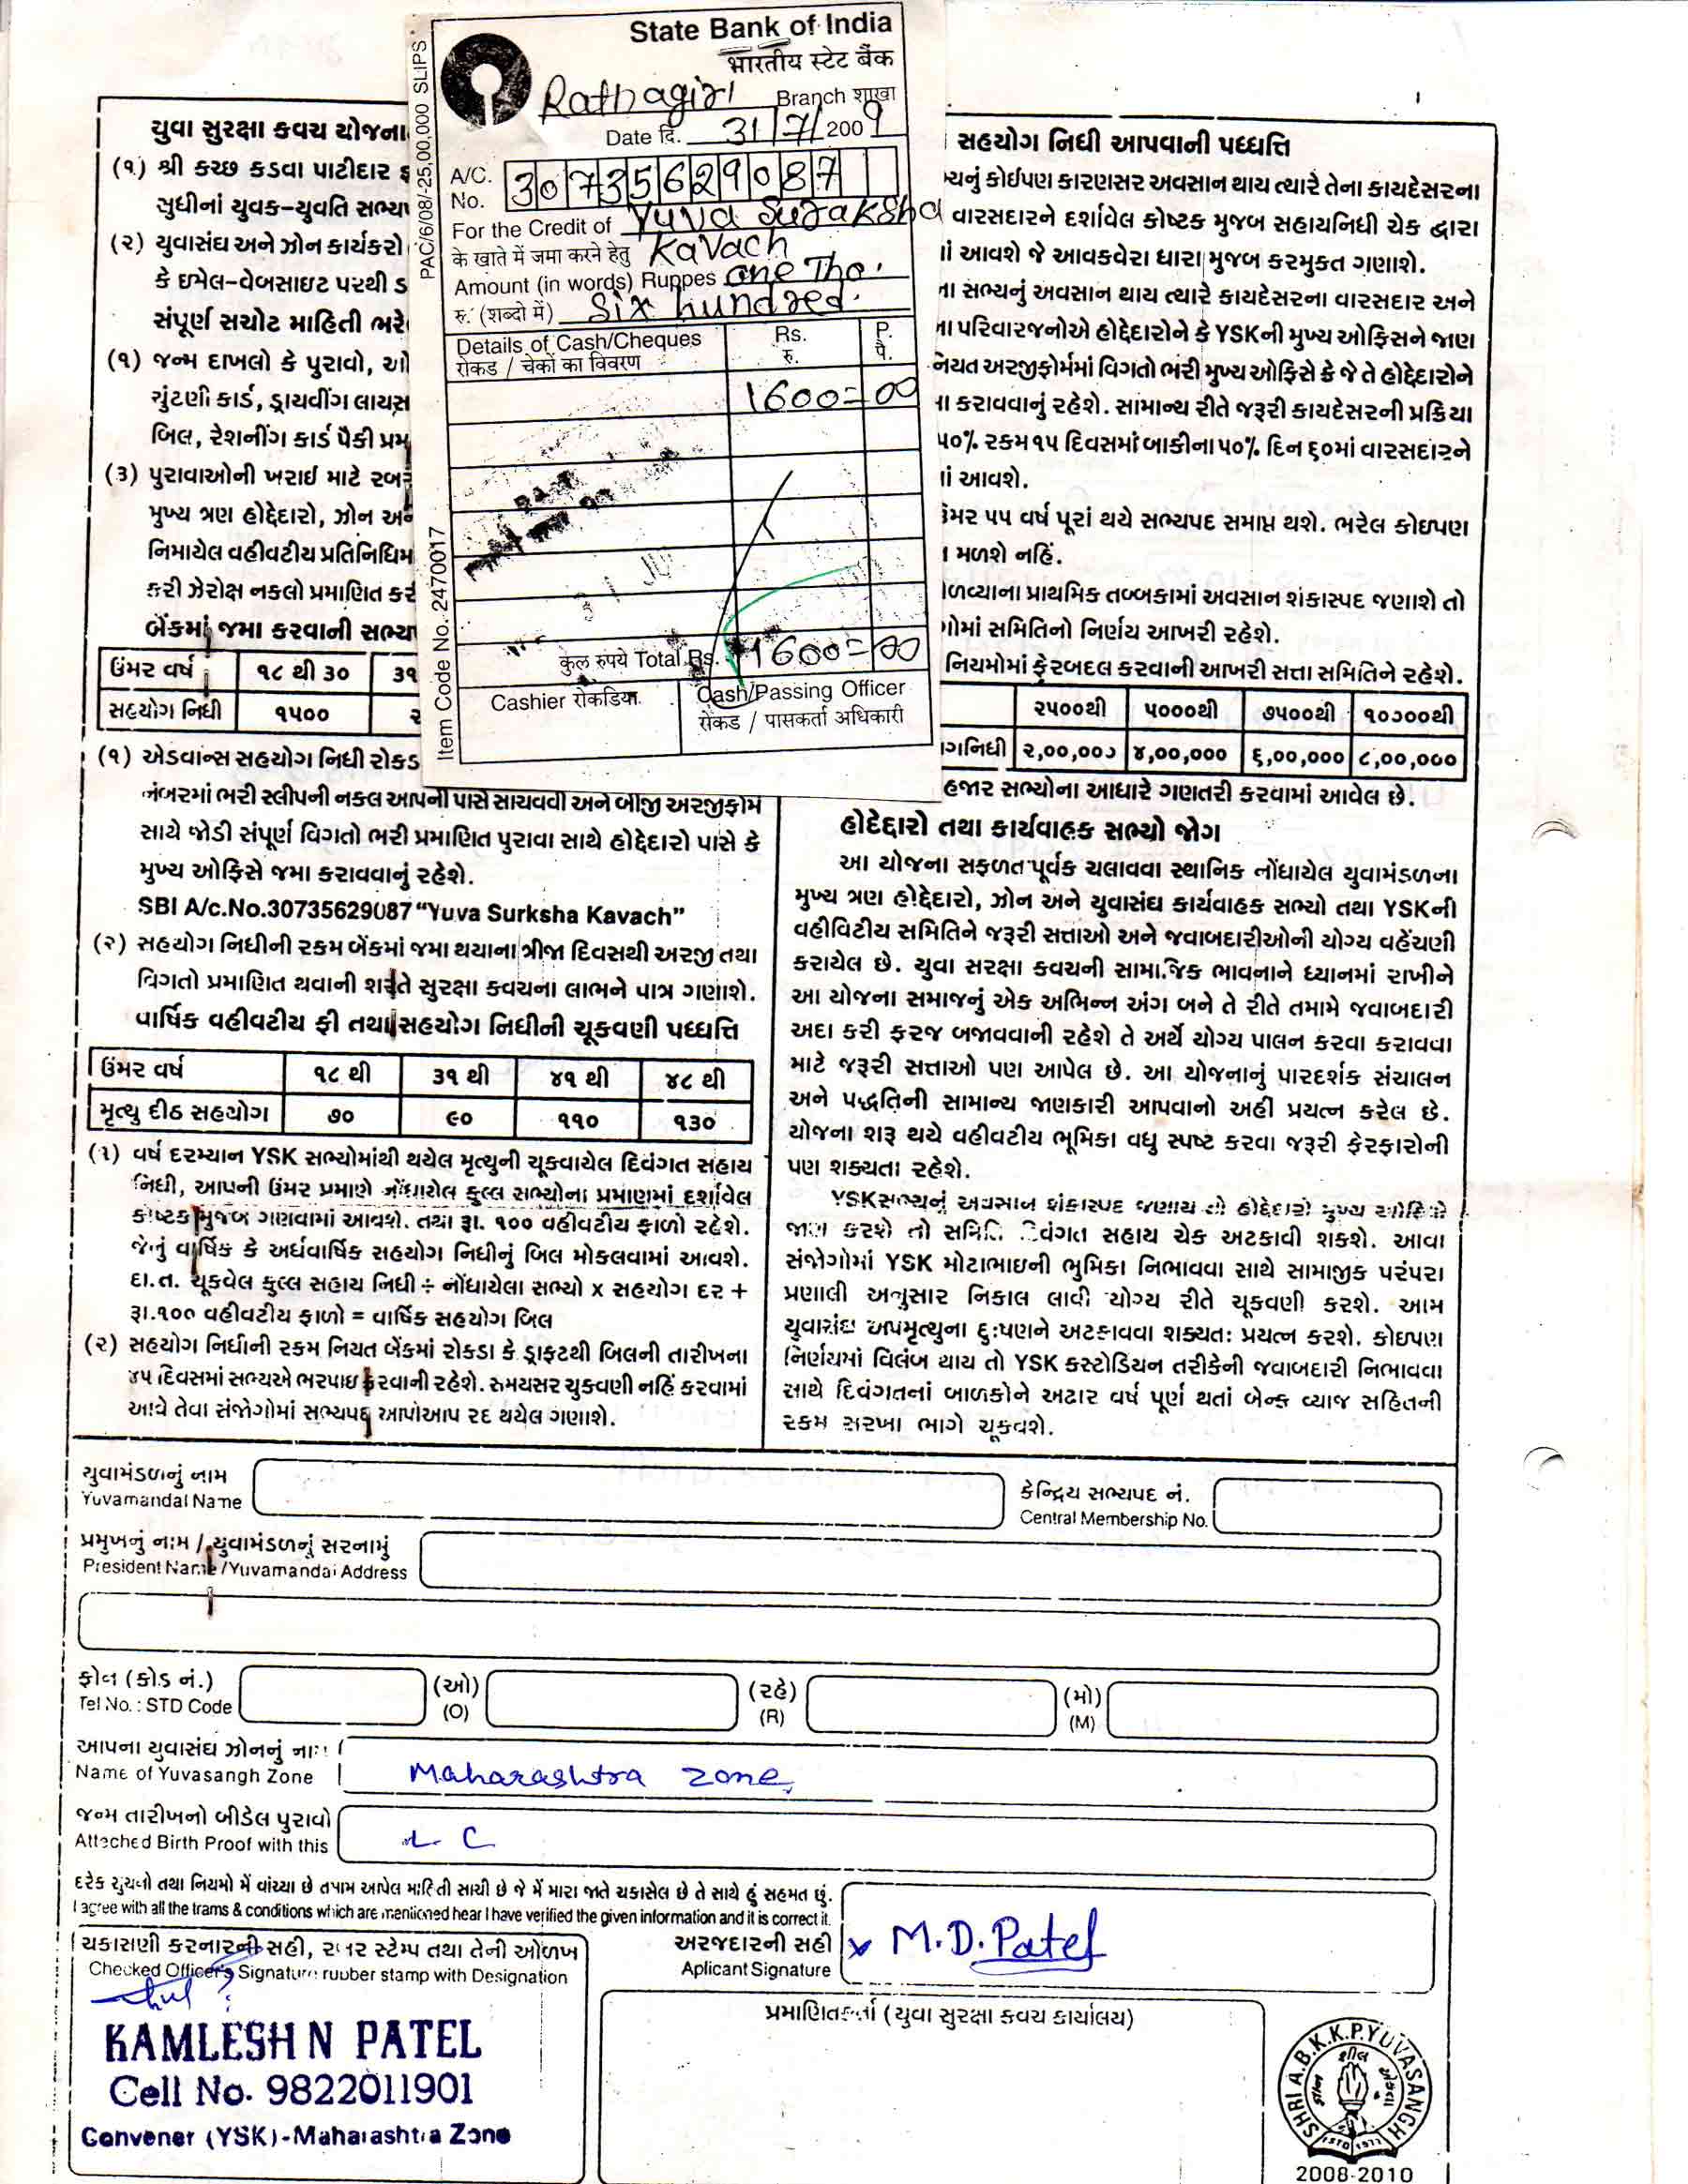 State Bank of India
भारतीय स्टेट बैंक
Ratnagiri Branch शाखा
Date दि. 31/7/2009
PAC/6/08/-25,00,000 SLIPS
A/C. No. 30735629087
For the Credit of Yuva Suraksha
के खाते में जमा करने हेतु Kavach
Amount (in words) Ruppes One Tho.
रु. (शब्दो में) Six hundred.
Details of Cash/Cheques Rs. P.
रोकड / चेकों का विवरण रु. पै.
1600=00
Item Code No. 2470017
कुल रुपये Total Rs. 1600=00
Cashier रोकडिया. Cash/Passing Officer
रोकड / पासकर्ता अधिकारी
યુવા સુરક્ષા કવચ યોજના
(૧) શ્રી કચ્છ કડવા પાટીદાર
સુધીનાં યુવક-યુવતિ સભ્ય
(૨) યુવાસંઘ અને ઝોન કાર્યકરો
કે ઇમેલ-વેબસાઇટ પરથી ડ
સંપૂર્ણ સચોટ માહિતી ભરે
(૧) જન્મ દાખલો કે પુરાવો, ઓ
ચુંટણી કાર્ડ, ડ્રાયવીંગ લાયસ
બિલ, રેશનીંગ કાર્ડ પૈકી પ્રમ
(૩) પુરાવાઓની ખરાઈ માટે રબ
મુખ્ય ત્રણ હોદ્દેદારો, ઝોન અ
નિમાયેલ વહીવટીય પ્રતિનિધિમ
કરી ઝેરોક્ષ નકલો પ્રમાણિત કર
બેંકમાં જમા કરવાની સભ્ય
ઉંમર વર્ષ ૧૮ થી ૩૦ ૩૧
સહયોગ નિધી ૧૫૦૦ ૨
(૧) એડવાન્સ સહયોગ નિધી રોકડ
નંબરમાં ભરી સ્લીપની નકલ આપની પાસે સાચવવી અને બીજી અરજીફોર્મ
સાથે જોડી સંપૂર્ણ વિગતો ભરી પ્રમાણિત પુરાવા સાથે હોદ્દેદારો પાસે કે
મુખ્ય ઓફિસે જમા કરાવવાનું રહેશે.
SBI A/c.No.30735629087 “Yuva Surksha Kavach”
(૨) સહયોગ નિધીની રકમ બેંકમાં જમા થયાના ત્રીજા દિવસથી અરજી તથા
વિગતો પ્રમાણિત થવાની શરતે સુરક્ષા કવચના લાભને પાત્ર ગણાશે.
વાર્ષિક વહીવટીય ફી તથા સહયોગ નિધીની ચૂકવણી પધ્ધતિ
ઉંમર વર્ષ ૧૮ થી ૩૧ થી ૪૧ થી ૪૮ થી
મૃત્યુ દીઠ સહયોગ ૭૦ ૯૦ ૧૧૦ ૧૩૦
(૧) વર્ષ દરમ્યાન YSK સભ્યોમાંથી થયેલ મૃત્યુની ચૂકવાયેલ દિવંગત સહાય
નિધી, આપની ઉંમર પ્રમાણે નોંધાયેલ કુલ્લ સભ્યોના પ્રમાણમાં દર્શાવેલ
કોષ્ટક મુજબ ગણવામાં આવશે. તથા રૂા. ૧૦૦ વહીવટીય ફાળો રહેશે.
જેનું વાર્ષિક કે અર્ધવાર્ષિક સહયોગ નિધીનું બિલ મોકલવામાં આવશે.
દા.ત. ચૂકવેલ કુલ્લ સહાય નિધી ÷ નોંધાયેલા સભ્યો x સહયોગ દર +
રૂા.૧૦૦ વહીવટીય ફાળો = વાર્ષિક સહયોગ બિલ
(૨) સહયોગ નિધીની રકમ નિયત બેંકમાં રોકડા કે ડ્રાફ્ટથી બિલની તારીખના
૪૫ દિવસમાં સભ્યએ ભરપાઇ કરવાની રહેશે. સમયસર ચુકવણી નહિં કરવામાં
આવે તેવા સંજોગોમાં સભ્યપદ આપોઆપ રદ થયેલ ગણાશે.
સહયોગ નિધી આપવાની પધ્ધતિ
યનું કોઈપણ કારણસર અવસાન થાય ત્યારે તેના કાયદેસરના
વારસદારને દર્શાવેલ કોષ્ટક મુજબ સહાયનિધી ચેક દ્વારા
માં આવશે જે આવકવેરા ધારા મુજબ કરમુકત ગણાશે.
ના સભ્યનું અવસાન થાય ત્યારે કાયદેસરના વારસદાર અને
ના પરિવારજનોએ હોદ્દેદારોને કે YSKની મુખ્ય ઓફિસને જાણ
નિયત અરજીફોર્મમાં વિગતો ભરી મુખ્ય ઓફિસે કે જે તે હોદ્દેદારોને
ના કરાવવાનું રહેશે. સામાન્ય રીતે જરૂરી કાયદેસરની પ્રક્રિયા
૫૦% રકમ ૧૫ દિવસમાં બાકીના ૫૦% દિન ૬૦માં વારસદારને
માં આવશે.
ઉંમર ૫૫ વર્ષ પૂરાં થયે સભ્યપદ સમાપ્ત થશે. ભરેલ કોઇપણ
મળશે નહિં.
ળવ્યાના પ્રાથમિક તબ્બકામાં અવસાન શંકાસ્પદ જણાશે તો
ગોમાં સમિતિનો નિર્ણય આખરી રહેશે.
નિયમોમાં ફેરબદલ કરવાની આખરી સત્તા સમિતિને રહેશે.
૨૫૦૦થી ૫૦૦૦થી ૭૫૦૦થી ૧૦૦૦૦થી
ગનિધી ૨,૦૦,૦૦૦ ૪,૦૦,૦૦૦ ૬,૦૦,૦૦૦ ૮,૦૦,૦૦૦
હજાર સભ્યોના આધારે ગણતરી કરવામાં આવેલ છે.
હોદેદ્દારો તથા કાર્યવાહક સભ્યો જોગ
આ યોજના સફળતાપૂર્વક ચલાવવા સ્થાનિક નોંધાયેલ યુવામંડળના
મુખ્ય ત્રણ હોદ્દેદારો, ઝોન અને યુવાસંઘ કાર્યવાહક સભ્યો તથા YSKની
વહીવિટીય સમિતિને જરૂરી સત્તાઓ અને જવાબદારીઓની યોગ્ય વહેંચણી
કરાયેલ છે. યુવા સરક્ષા કવચની સામાજિક ભાવનાને ધ્યાનમાં રાખીને
આ યોજના સમાજનું એક અભિન્ન અંગ બને તે રીતે તમામે જવાબદારી
અદા કરી ફરજ બજાવવાની રહેશે તે અર્થે યોગ્ય પાલન કરવા કરાવવા
માટે જરૂરી સત્તાઓ પણ આપેલ છે. આ યોજનાનું પારદર્શક સંચાલન
અને પદ્ધતિની સામાન્ય જાણકારી આપવાનો અહીં પ્રયત્ન કરેલ છે.
યોજના શરૂ થયે વહીવટીય ભૂમિકા વધુ સ્પષ્ટ કરવા જરૂરી ફેરફારોની
પણ શક્યતા રહેશે.
YSKસભ્યનું અવસાન શંકાસ્પદ જણાય તો હોદ્દેદારો મુખ્ય ઓફિસે
જાણ કરશે તો સમિતિ દિવંગત સહાય ચેક અટકાવી શકશે. આવા
સંજોગોમાં YSK મોટાભાઇની ભુમિકા નિભાવવા સાથે સામાજીક પરંપરા
પ્રણાલી અનુસાર નિકાલ લાવી યોગ્ય રીતે ચૂકવણી કરશે. આમ
યુવાસંઘ અપમૃત્યુના દુઃષણને અટકાવવા શક્યતઃ પ્રયત્ન કરશે. કોઇપણ
નિર્ણયમાં વિલંબ થાય તો YSK કસ્ટોડિયન તરીકેની જવાબદારી નિભાવવા
સાથે દિવંગતનાં બાળકોને અઢાર વર્ષ પૂર્ણ થતાં બેન્ક વ્યાજ સહિતની
રકમ સરખા ભાગે ચૂકવશે.
યુવામંડળનું નામ
Yuvamandal Name
કેન્દ્રિય સભ્યપદ નં.
Central Membership No.
પ્રમુખનું નામ / યુવામંડળનું સરનામું
President Name /Yuvamandal Address
ફોન (કોડ નં.) (ઓ) (રહે) (મો)
Tel No. : STD Code (O) (R) (M)
આપના યુવાસંઘ ઝોનનું નામ
Name of Yuvasangh Zone Maharashtra Zone
જન્મ તારીખનો બીડેલ પુરાવો
Atteched Birth Proof with this L C
દરેક સુચનો તથા નિયમો મેં વાંચ્યા છે તમામ આપેલ માહિતી સાચી છે જે મેં મારા જાતે ચકાસેલ છે તે સાથે હું સહમત છું.
I agree with all the trams & conditions which are mentioned hear I have verified the given information and it is correct it.
અરજદારની સહી x M.D.Patel
Aplicant Signature
ચકાસણી કરનારની સહી, રબર સ્ટેમ્પ તથા તેની ઓળખ
Checked Officer's Signature rubber stamp with Designation
KAMLESH N PATEL
Cell No. 9822011901
Convener (YSK)-Maharashtra Zone
પ્રમાણિતકર્તા (યુવા સુરક્ષા કવચ કાર્યાલય)
SHRI A.B.K.K.P.YUVASANGH
ESTD 1977
2008-2010